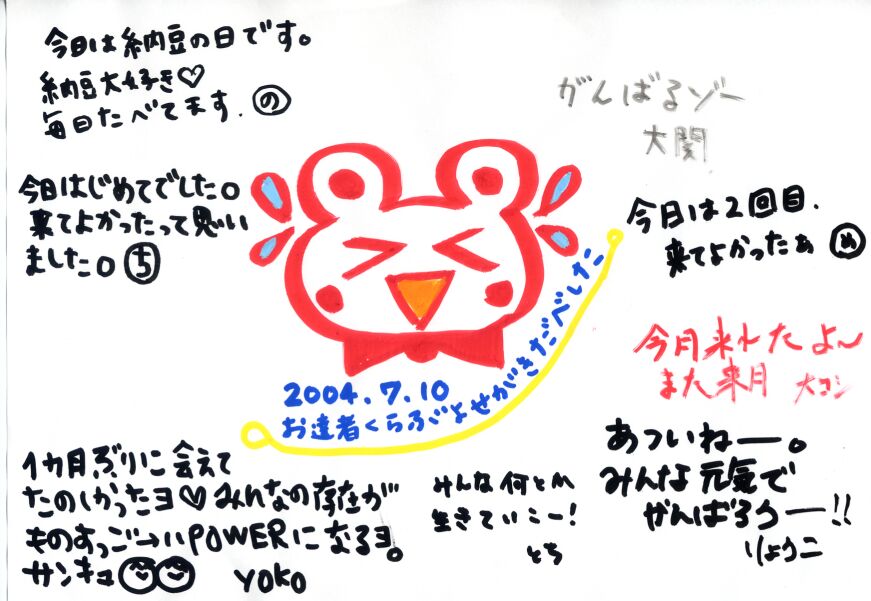 今日は納豆の日です。
納豆大好き♡
毎日たべてます. の
がんばるゾー
大関
今日はじめてでした。
来てよかったって思い
ました。ち
今日は2回目.
来てよかったぁ め
今月来れたよ〜
また来月 大コシ
2004.7.10
お達者くらぶよせがきだべした
1カ月ぶりに会えて
たのしかったヨ♡みんなの存在が
ものすっご→いPOWERになるヨ。
サンキュ
YOKO
みんな何とか
生きていこー!
とち
あついねー。
みんな元気で
がんばろうー!!
りょうこ